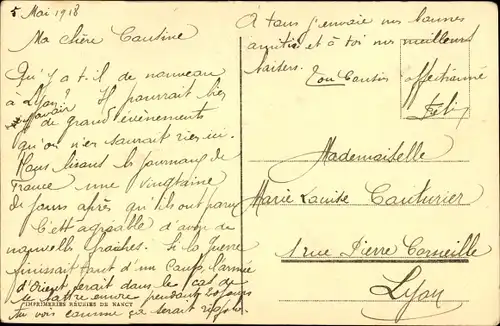 5 Mai 1918
Ma chère Cousine
Qu'y a-t-il de nouveau
à Lyon? Il pourrait bien
y avoir de grands événements
qu'on n'en saurait rien ici.
Nous lisons les journaux de
France une vingtaine
de jours après qu'ils ont paru
C'est agréable d'avoir de
nouvelles fraîches. Si la guerre
finissait tout d'un coup, l'armée
d'Orient serait dans le cas de
se battre encore pendant 20 jours
Tu vois comme ça serait rigolo.
IMPRIMERIES RÉUNIES DE NANCY
À tous j'envoie mes bonnes
amitiés et à toi mes meilleurs
baisers.
Ton Cousin affectionné
Mademoiselle
Marie Louise Couturier
1 rue Pierre Corneille
Lyon